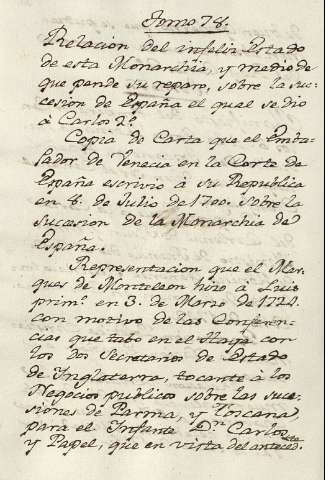 Tomo 78.
Relacion del infeliz Estado
de esta Monarchîa, y medio de
que pende su reparo, sobre la suc-
cesion de España el qual se dio
à Carlos 2º.
Copia de Carta que el Emba-
sador de Venecia en la Corte de
España escrivio à su Republica
en 8. de Julio de 1700. sobre la
sucesion de la Monarchia de
España.
Representacion que el Mar-
ques de Monteleon hizo à Luis
primº en 3. de Marzo de 1724.
con motivo de las Conferen-
cias que tubo en el Haya con
los dos Secretarios de Estado
de Inglaterra, tocante à los
Negocios publicos sobre las suce-
siones de Parma, y Toscana,
para el Infante Dn. Carlos
y Papel, que en vista del anteced.ente